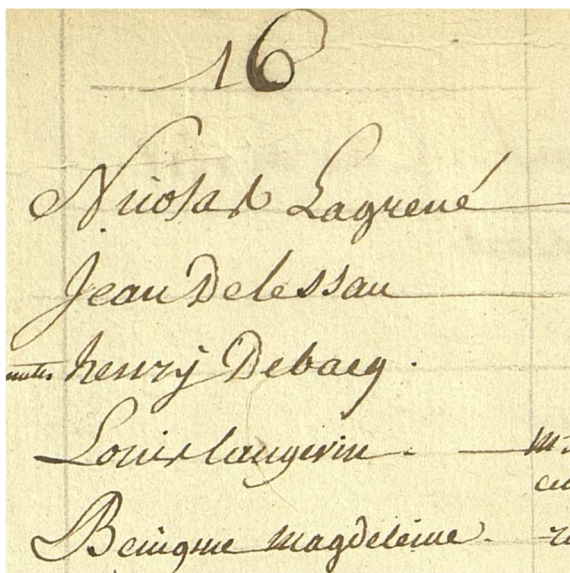 16
Nicolas Lagrené
Jean Delessau
henry Debacq.
Louis langevin.
Benigne magdeleine.